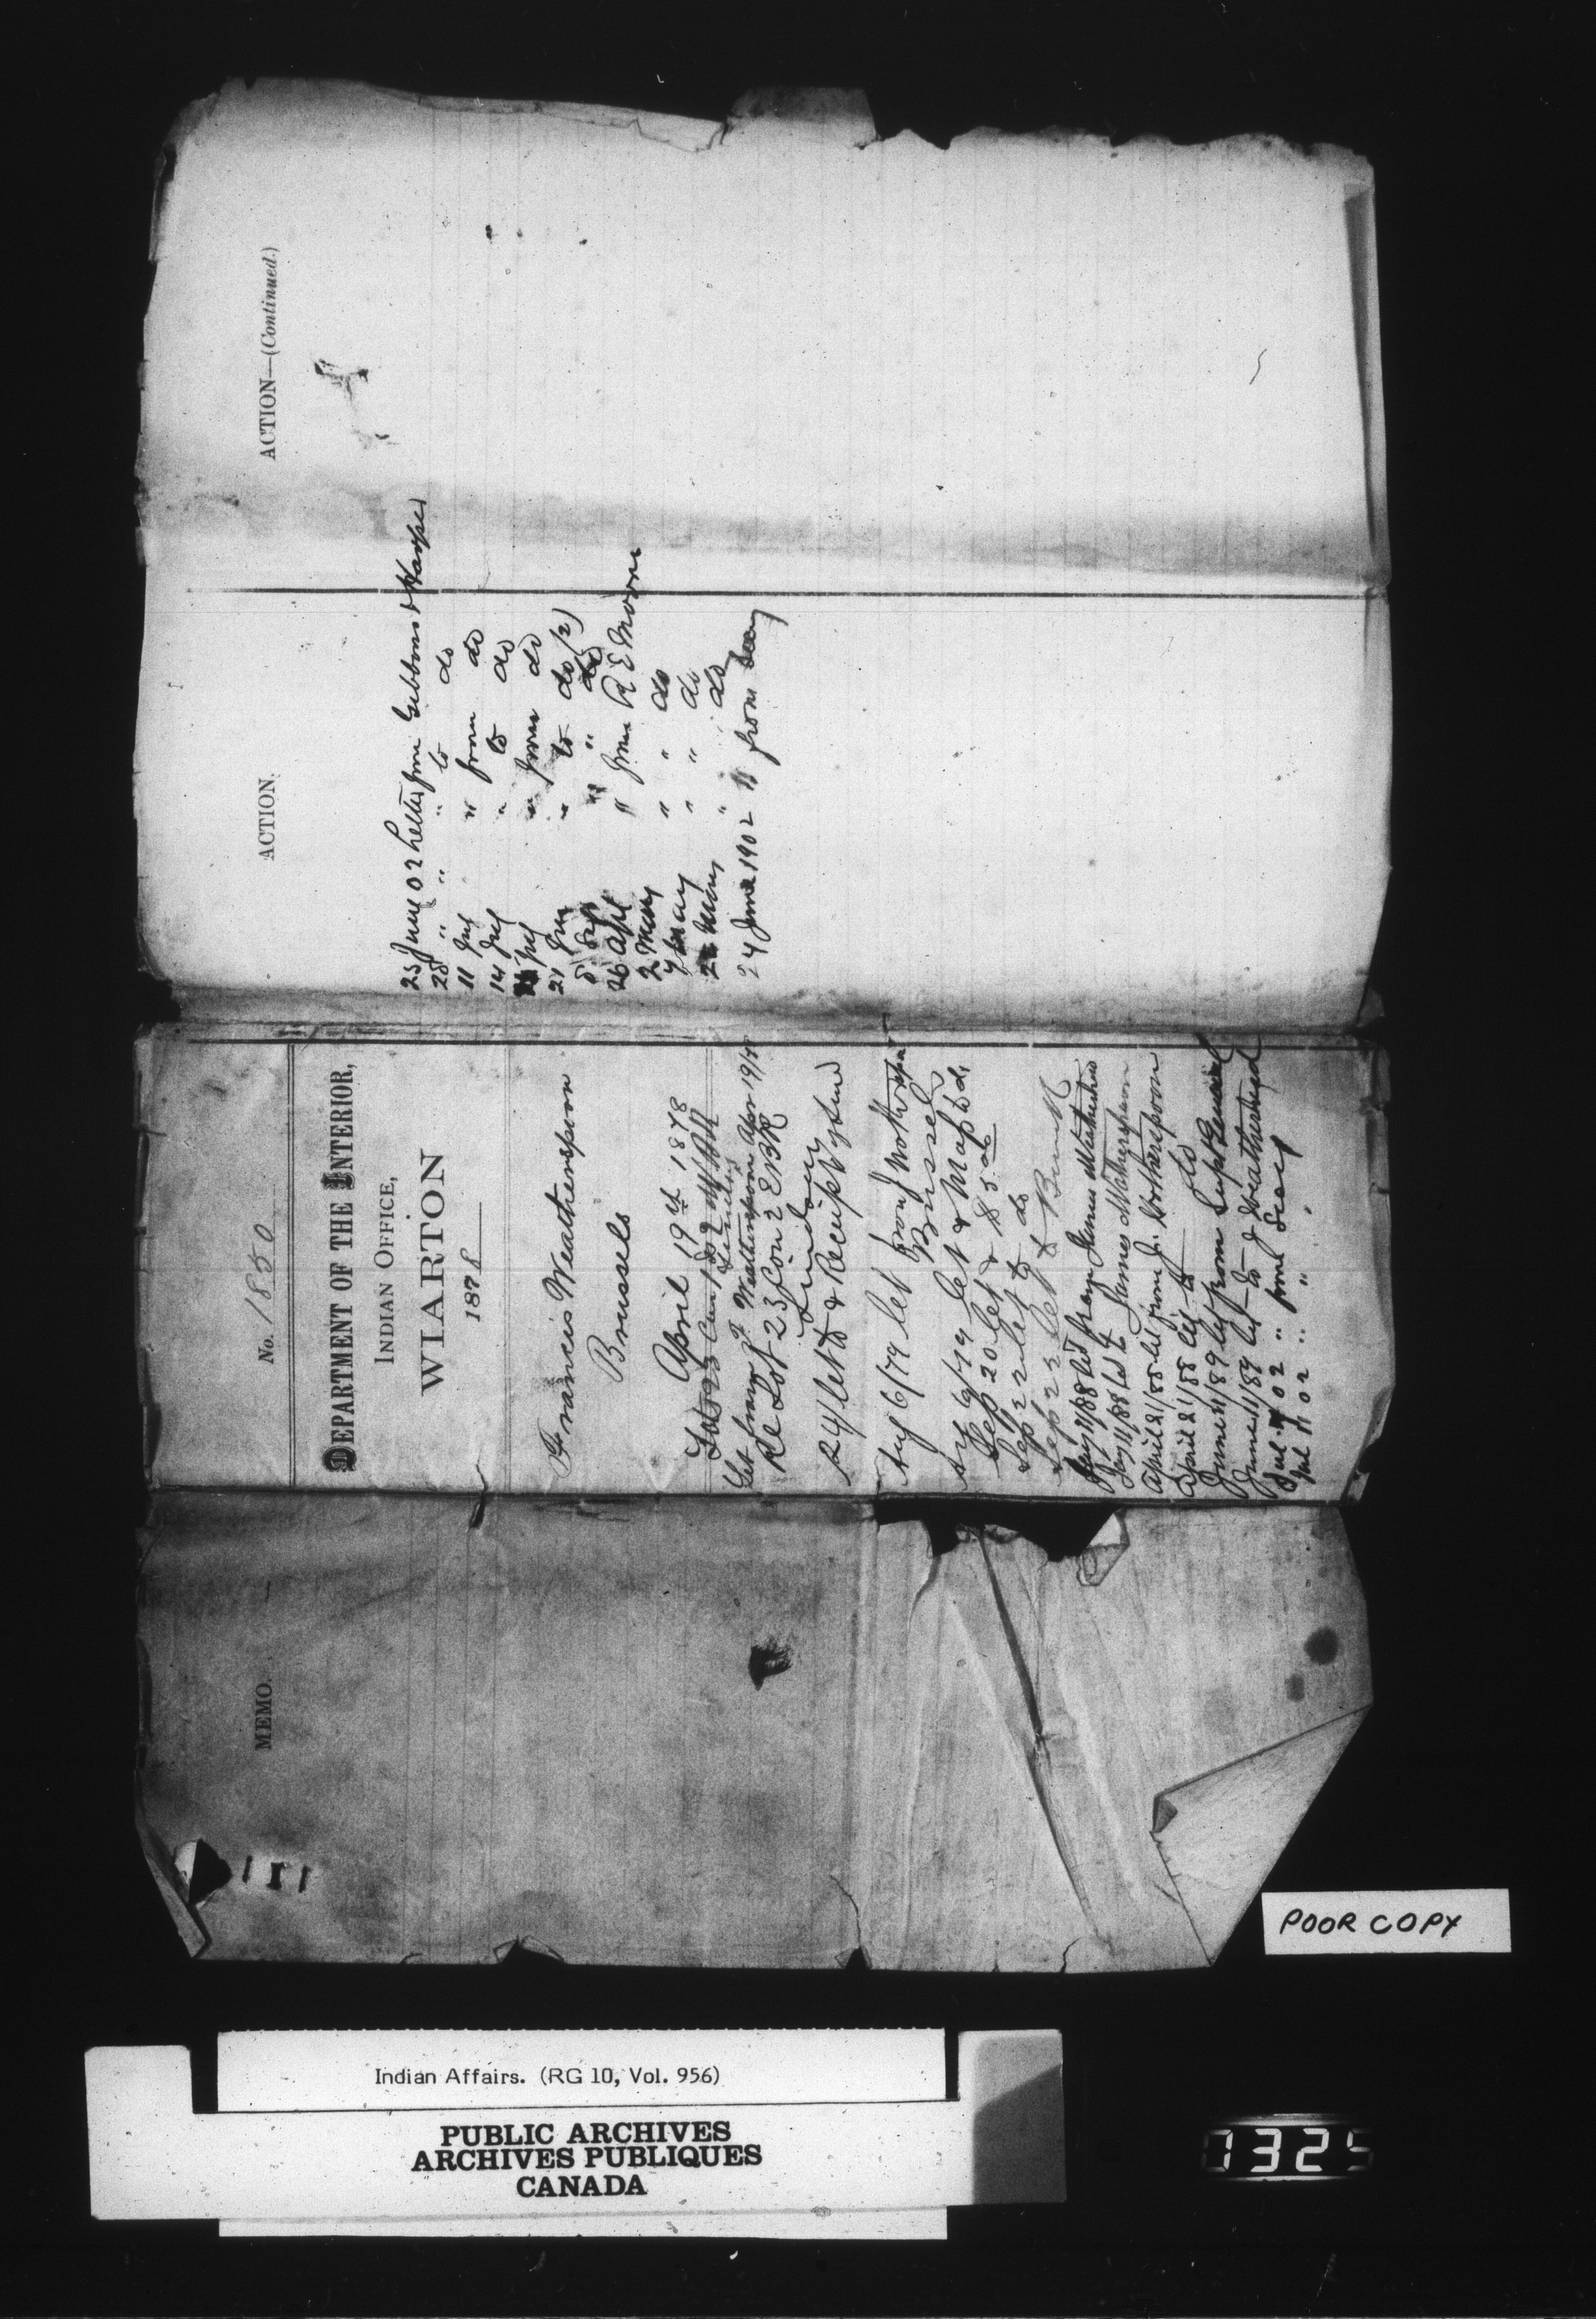 MEMO.
No. 1850
DEPARTMENT OF THE INTERIOR,
INDIAN OFFICE,
WIARTON
1878
Francis Weatherspoon
Brussels
April 19th 1878
Let from F Weatherspoon Apr 19/78
Re Lot 23 Con 2 EBR
Lindsay
24/ let to & Receipt
Aug 6/79 let from J
Brussels
9/79 let & Map to do
Sep 20 let & $5.00
Sep 22 let to do
Sep 23 let to
Jany 11/88 let from James
Jany 11/88 let to James Wotherspoon
April 21/88 let from Jn. Wotherspoon
April 21/88 let to do
June 11/89 let from Supt General
June 11/89 let to J Weatherhead
Jul 02 " from Secy
Jul 11 02 " " "
ACTION.
25 June 02 Letter from Gibbons & Harper
28 " " " to do
11 Jul " from do
14 Jul " to do
Jul " from do
21 " to do (2)
" " do
26 Apl " from R E Moore
2 May " " do
7 May " " do
" do
24 June 1902 " from Secy
ACTION—(Continued.)
POOR COPY
Indian Affairs. (RG 10, Vol. 956)
PUBLIC ARCHIVES
ARCHIVES PUBLIQUES
CANADA
1325